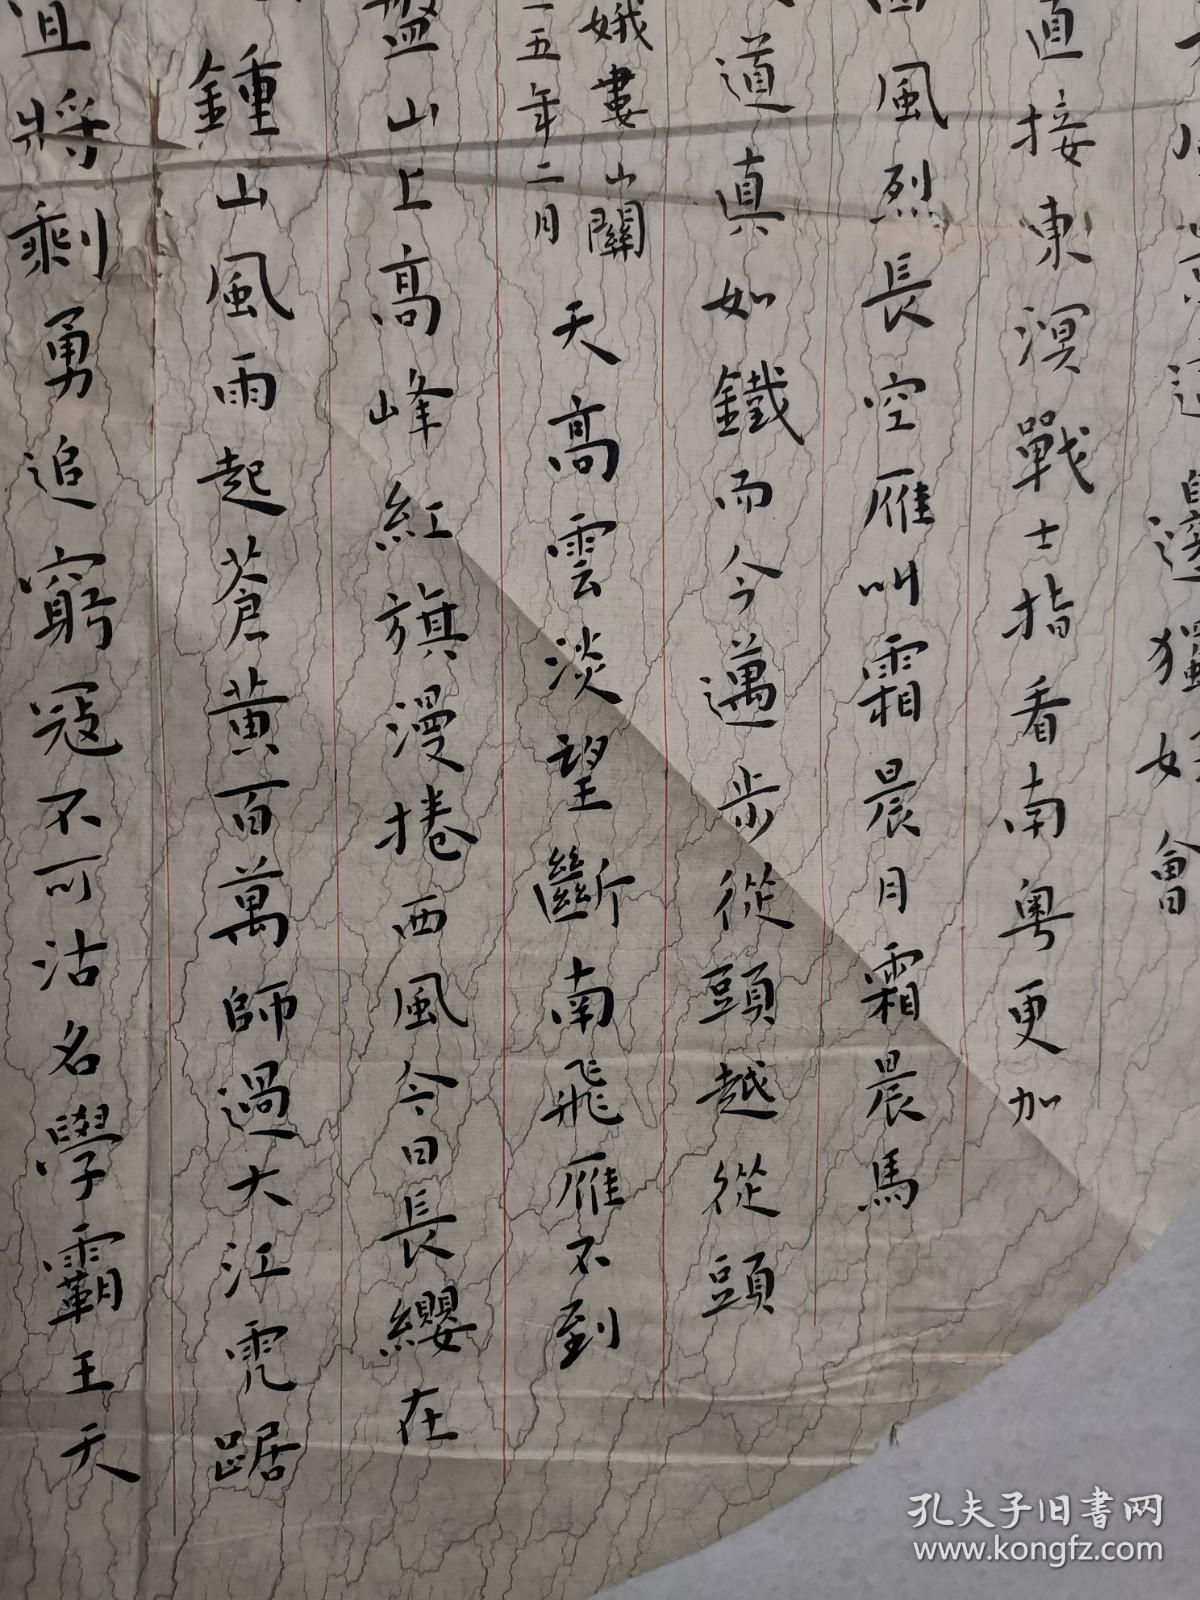 邊獨好會
直接東溟戰士指看南粵更加
西風烈長空雁叫霜晨月霜晨馬
道真如鐵而今邁步從頭越從頭
娥婁山關
五年二月
天高雲淡望斷南飛雁不到
盤山上高峰紅旗漫捲西風今日長纓在
鍾山風雨起蒼黃百萬師過大江虎踞
宜將剩勇追窮寇不可沽名學霸王天
孔夫子旧书网
www.kongfz.com